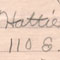 Hattie
110 S.